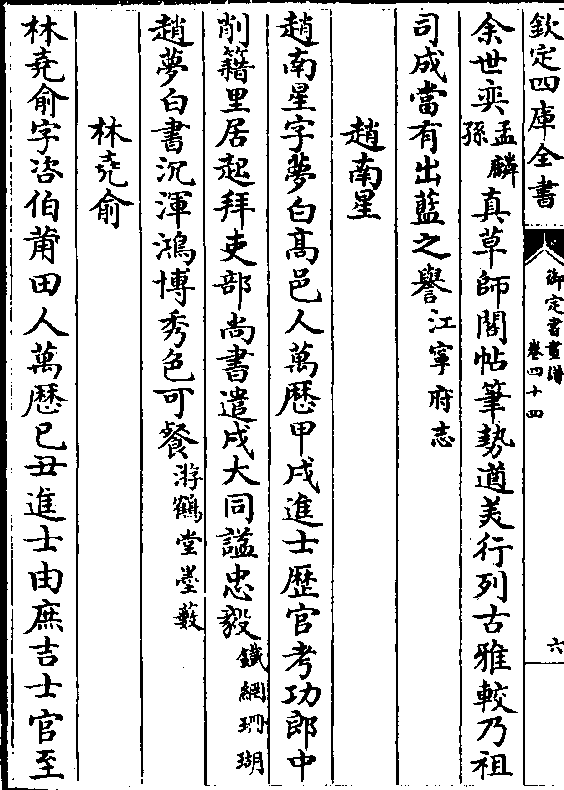 欽定四庫全書
御定書畫譜
卷四十四
六
余世奕孟麟孫真草師閣帖筆勢遒美行列古雅較乃祖
司成當有出藍之譽江寧府志
趙南星
趙南星字夢白髙邑人萬厯甲戌進士歴官考功郎中
削籍里居起拜吏部尚書遣戍大同諡忠毅鐵網珊瑚
趙夢白書沉渾鴻博秀色可餐游鶴堂墨藪
林堯俞
林堯俞字咨伯莆田人萬厯已丑進士由庶吉士官至